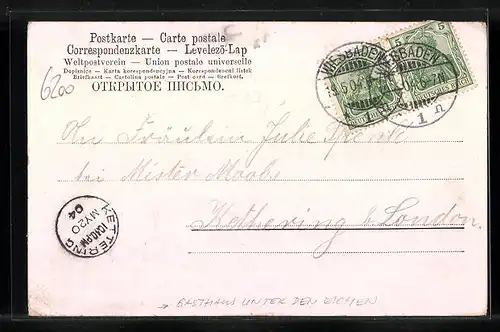 Postkarte — Carte postale
Correspondenzkarte — Levelező-Lap
Weltpostverein — Union postale universelle
Dopisnice — Karta korrespondencyjna — Korespondenční lístek
Briefkaart — Cartolina postale — Post card — Brefkort.
ОТКРЫТОЕ ПИСЬМО.
6200
WIESBADEN
1 n
WIESBADEN
5
An Fräulein Julie
bei Mister Moabs
Kethering b/London.
KETTERING
MY 20
04
→ GASTHAUS UNTER DEN EICHEN